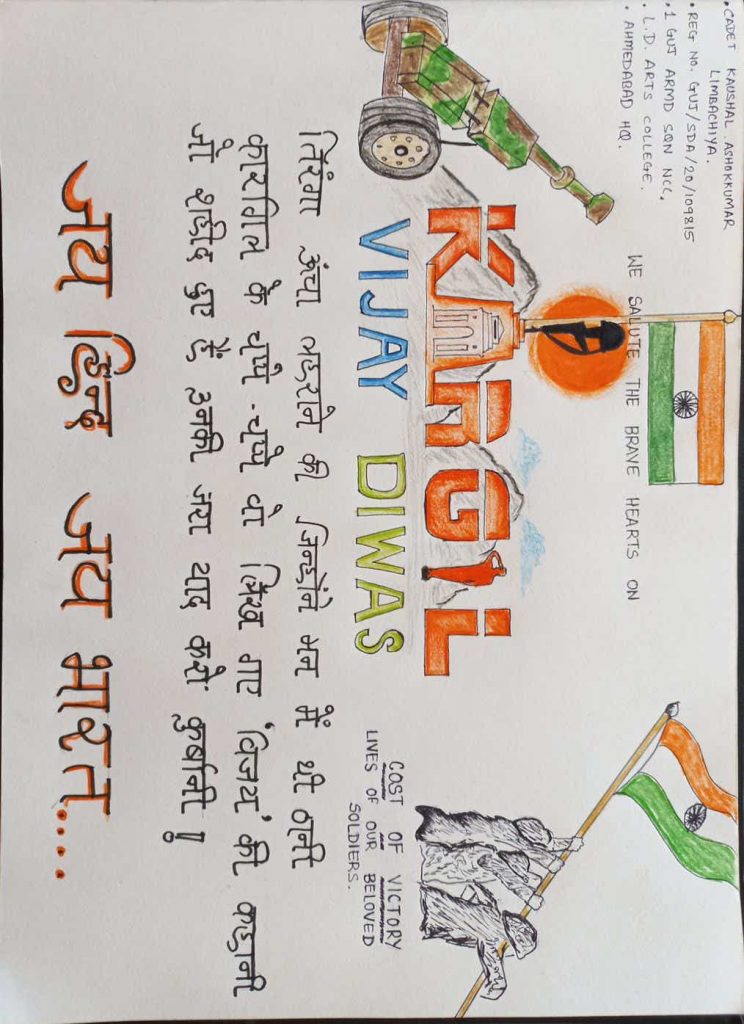 • CADET KAUSHAL . ASHOKKUMAR
LIMBACHIYA.
• REG NO. GUJ/SDA/20/109815
• 1 GUJ ARMD SQN NCC,
• L.D. ARTS COLLEGE.
• AHMEDABAD HQ.
WE SALUTE THE BRAVE HEARTS ON
KARGIL
VIJAY DIWAS
COST OF VICTORY
LIVES OF OUR BELOVED
SOLDIERS.
तिरंगा ऊंचा लहराने की जिन्होंने मन में थी ठानी
कारगिल के चप्पे-चप्पे वो लिख गए 'विजय' की कहानी
जो शहीद हुए हैं उनकी जरा याद करो कुर्बानी !
जय हिन्द जय भारत....